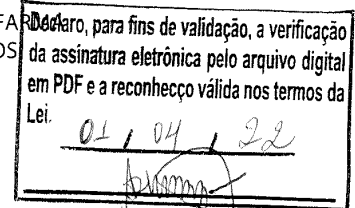 FARMA
Declaro, para fins de validação, a verificação
OS
da assinatura eletrônica pelo arquivo digital
em PDF e a reconhecço válida nos termos da
Lei.
01 / 04 / 22